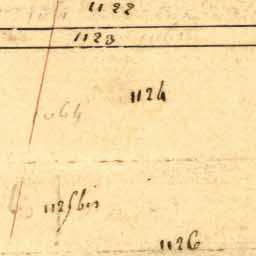 1122
1123
1124
1125 bis
1126